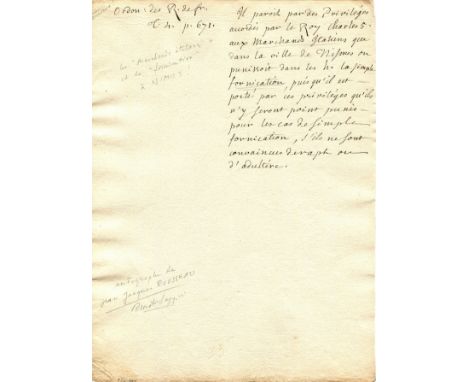 Ordon: des R. de fr.
T. 4. p. 671.
les Marchands italiens
et la fornication
à NIMES
Il paroit par des Privilèges
acordés par le Roy Charles 5.
aux Marchands Italiens que
dans la ville de Nismes on
punissoit dans les h. la simple
fornication puisqu'il est
porté par ces privilèges qu'ils
n'y seront point punis
pour les cas de simple
fornication, s'ils ne sont
convaincus de rapt ou
d'adultére.
autographe de
Jean Jacques ROUSSEAU